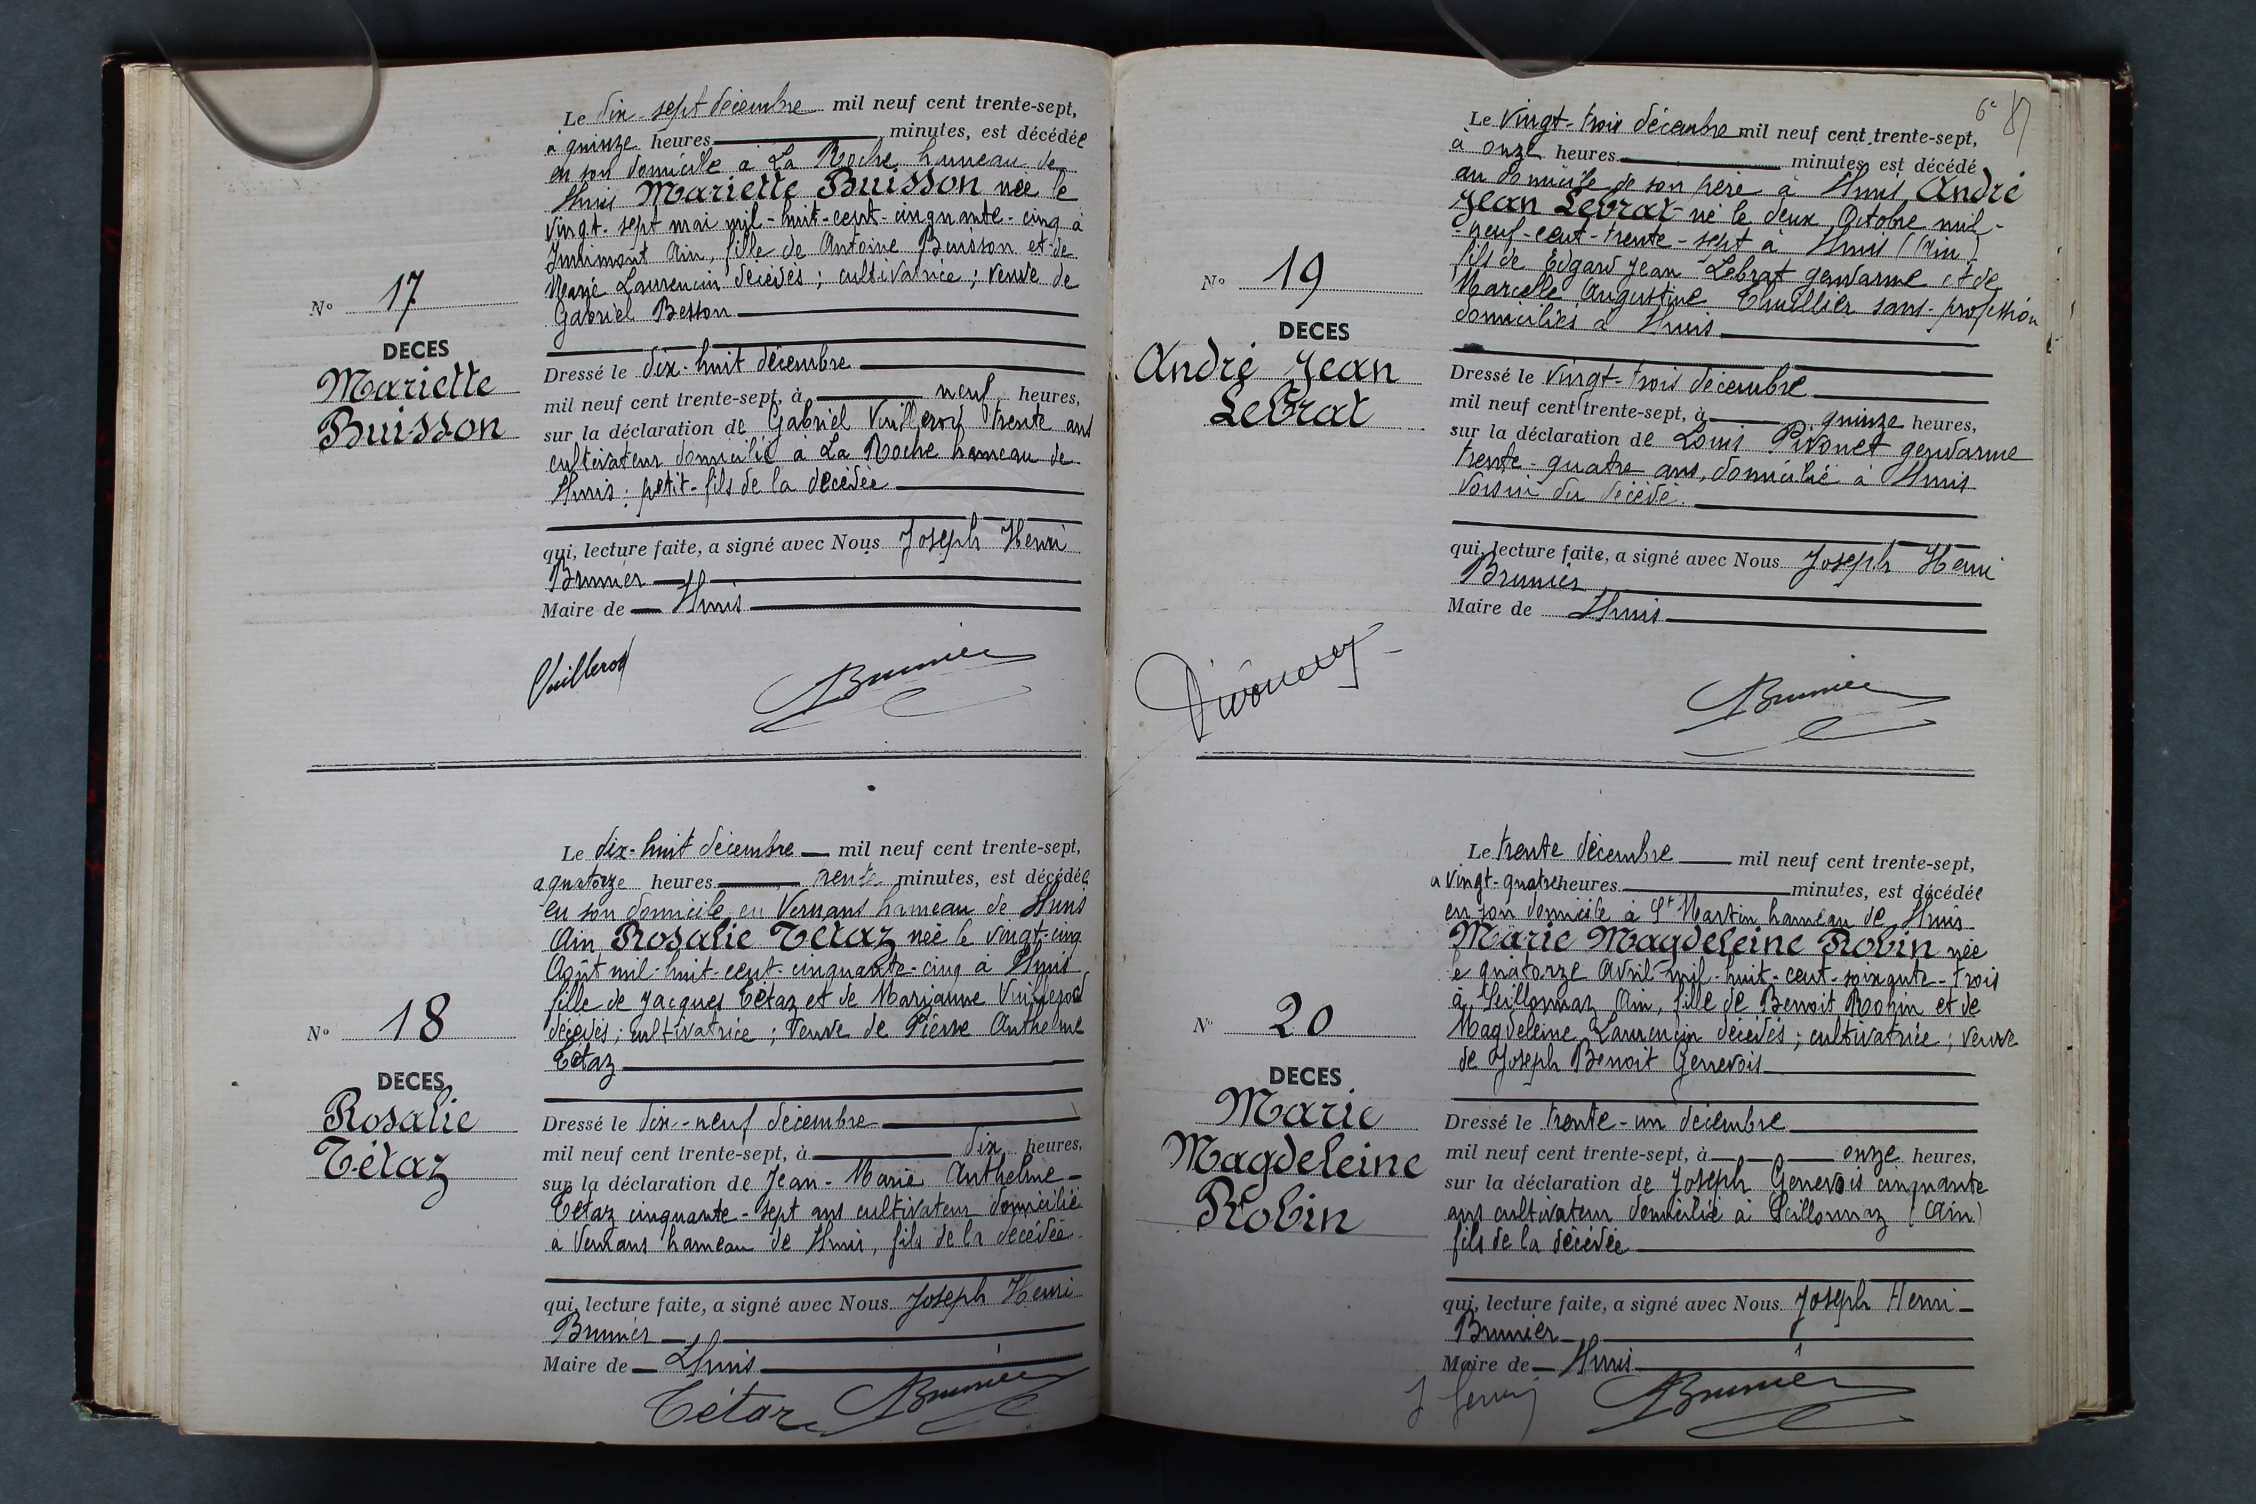 Le dix-sept décembre mil neuf cent trente-sept,
à quinze heures minutes, est décédée
en son domicile à La Roche hameau de
Lhuis Mariette Buisson née le
vingt-sept mai mil-huit-cent-cinquante-cinq à
Ain, fille de Antoine Buisson et de
Marie Laurencin décédés; cultivatrice; veuve de
Gabriel Besson
No 17
DECES
Mariette
Buisson
Dressé le dix-huit décembre
mil neuf cent trente-sept, à neuf heures,
sur la déclaration de Gabriel Vuillerod trente ans
cultivateur domicilié à La Roche hameau de
Lhuis; petit-fils de la décédée
qui, lecture faite, a signé avec Nous Joseph Henri
Brunier
Maire de Lhuis
Vuillerod Brunier
Le dix-huit décembre mil neuf cent trente-sept,
a quatorze heures trente minutes, est décédée
en son domicile en Vernans hameau de Lhuis
Ain Rosalie Tétaz née le vingt-cinq
Août mil-huit-cent-cinquante-cinq à Lhuis
fille de Jacques Tétaz et de Marianne Vuillerod
décédés; cultivatrice; veuve de Pierre Anthelme
Tétaz
No 18
DECES
Rosalie
Tétaz
Dressé le dix-neuf décembre
mil neuf cent trente-sept, à dix heures,
sur la déclaration de Jean-Marie Anthelme
Tétaz cinquante-sept ans cultivateur domicilié
à Vernans hameau de Lhuis, fils de la décédée
qui, lecture faite, a signé avec Nous Joseph Henri
Brunier
Maire de Lhuis
Tétaz Brunier
6e 87
Le vingt-trois décembre mil neuf cent trente-sept,
à onze heures minutes, est décédé
au domicile de son père à Lhuis André
Jean Lebrat né le deux Octobre mil-
neuf-cent-trente-sept à Lhuis (Ain)
fils de Edgard Jean Lebrat gendarme et de
Marcelle Augustine Thuillier sans-profession
domiciliés à Lhuis
No 19
DECES
André Jean
Lebrat
Dressé le vingt-trois décembre
mil neuf cent trente-sept, à quinze heures,
sur la déclaration de Louis Pivonet gendarme
trente-quatre ans, domicilié à Lhuis
voisin du décédé.
qui, lecture faite, a signé avec Nous Joseph Henri
Brunier
Maire de Lhuis
Brunier
Le trente décembre mil neuf cent trente-sept,
a vingt-quatre heures minutes, est décédée
en son domicile à St Martin hameau de Lhuis
Marie Magdeleine Robin née
le quatorze Avril mil-huit-cent-soixante-trois
à Seillonnaz Ain, fille de Benoit Robin et de
Magdeleine Laurencin décédés; cultivatrice; veuve
de Joseph Benoit Genevois
No 20
DECES
Marie
Magdeleine
Robin
Dressé le trente-un décembre
mil neuf cent trente-sept, à onze heures,
sur la déclaration de Joseph Genevois cinquante
ans cultivateur domicilié à Seillonnaz (Ain)
fils de la décédée
qui, lecture faite, a signé avec Nous Joseph Henri
Brunier
Maire de Lhuis
Brunier